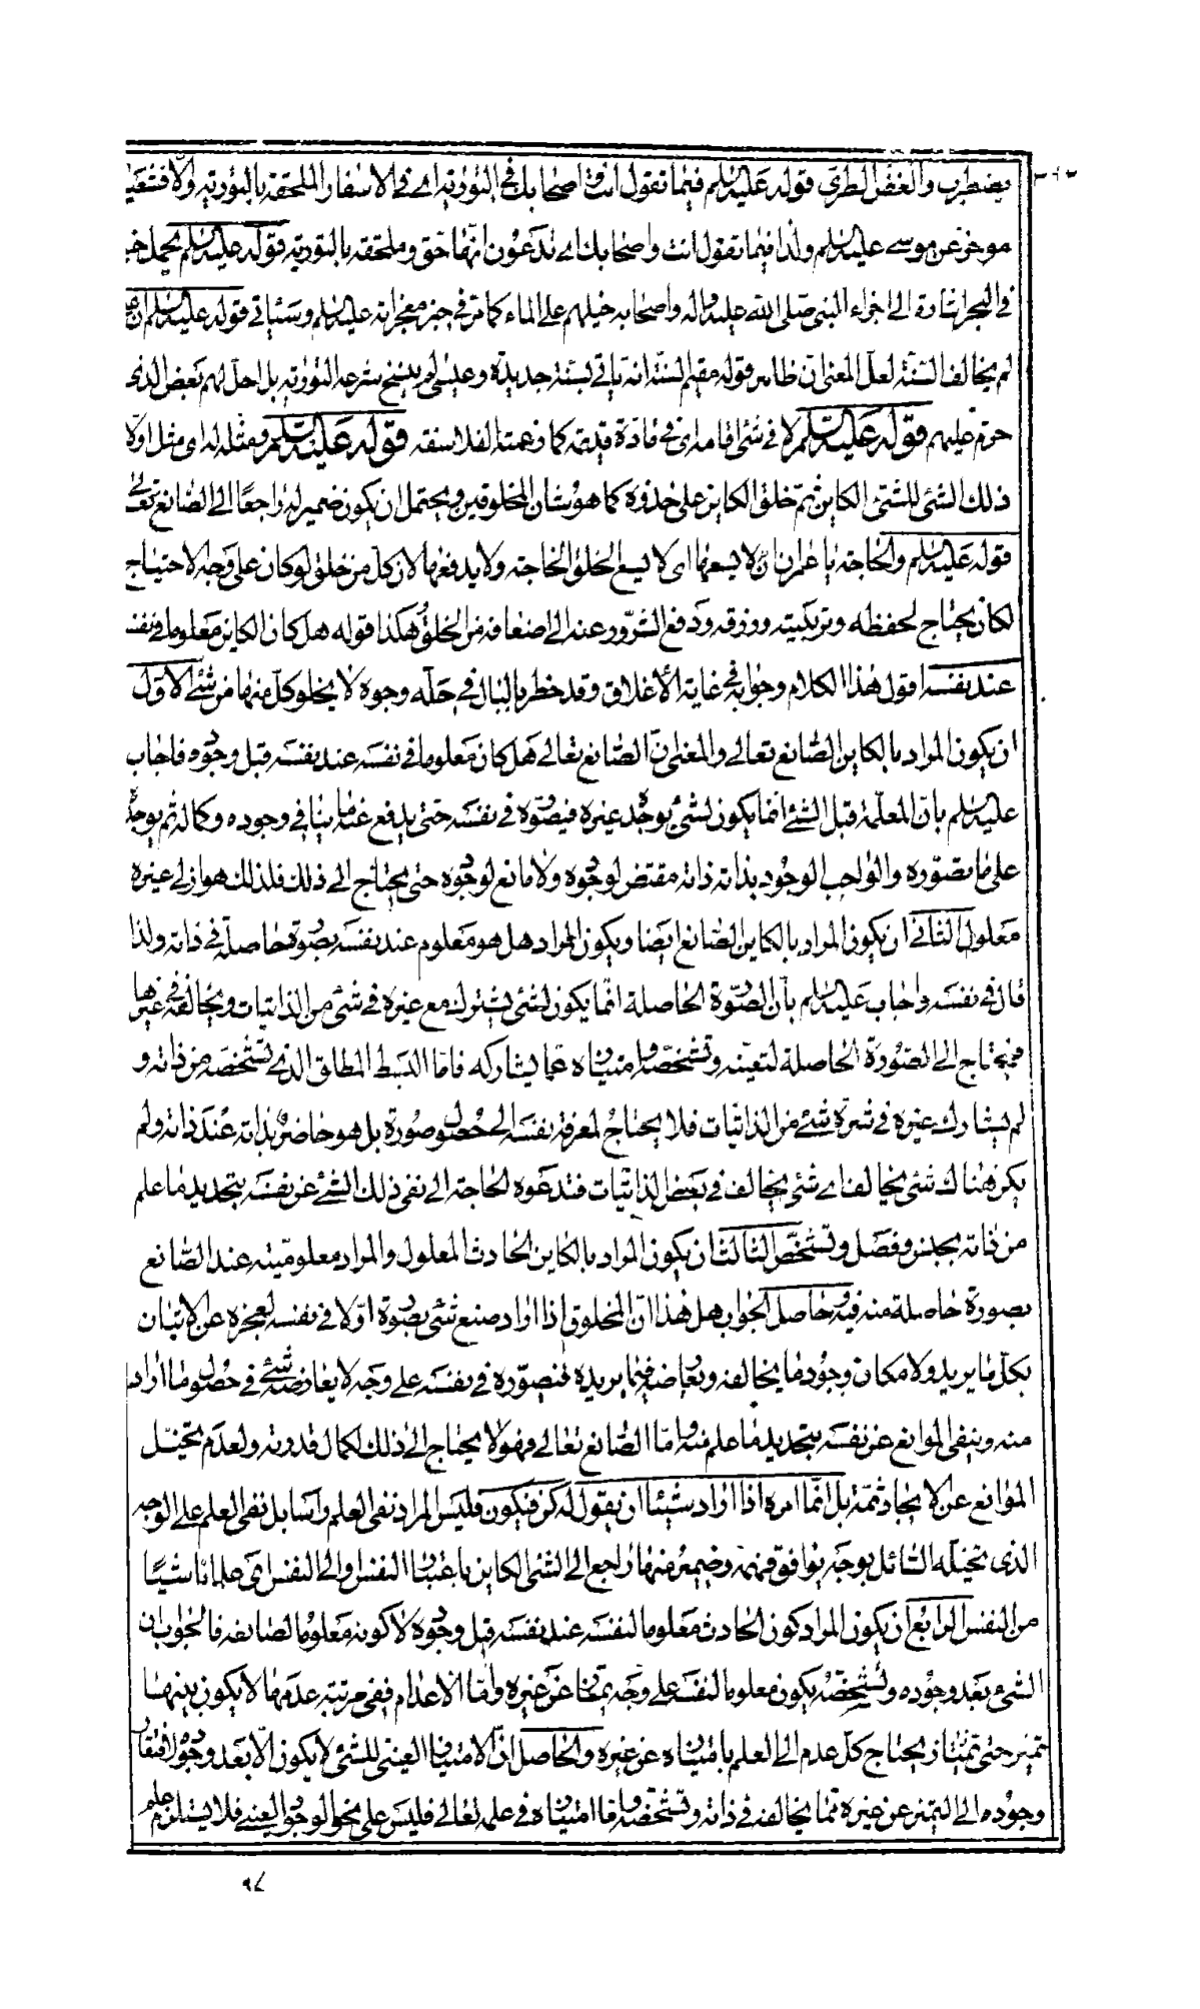 يضطرب والغض الطري قوله عليه السلم فيما تقول انت واصحابك في التورية اي في الاسفار الملحقة بالتورية والا فشعيا
موخر عن موسى عليه السلم ولذا فيما تقول انت واصحابك اي تدعون انها حق وملحقه بالتورية قوله عليه السلم يحمل خيله
في البحر اشارة الى اجراء النبي صلى الله عليه واله واصحابه خيلهم على الماء كما مر في خبر معجزاته عليه السلم وسياتي قوله عليه السلم ان عيسى
لم يخالف السنة لعل المعنى ان ظاهر قوله مقيم السنة انه ياتي بسنة جديدة وعيسى لم ينسخ شرعه التورية بل احل لهم بعض الذي
حرم عليهم قوله عليه السلم لا في شئ اقامه اي في مادة قديمة كما زعمته الفلاسفه قوله عليه السلم ومثله له اي مثل اولا
ذلك الشئ للشئ الكاين ثم خلق الكاين على حذوه كما هو شان المخلوقين ويحتمل ان يكون ضمير له راجعا الى الصانع تعالى
قوله عليه السلم والحاجة يا عمران لا يسعها اي لا يسع الخلق الحاجة ولا يدفعها لان كل من خلق لو كان على وجه الاحتياج
لكان يحتاج لحفظه وتربيته ورزقه ودفع الشرور عنه الى اضعافه من الخلق وهكذا قوله هل كان الكاين معلوما في نفسه
عند نفسه اقول هذا الكلام وجوابه في غاية الأغلاق وقد خطر بالبال في حله وجوه لا يخلو كل منها من شئ الاول
ان يكون المراد بالكاين الصانع تعالى والمعنى ان الصانع تعالى هل كان معلوما في نفسه عند نفسه قبل وجوده فاجاب
عليه السلم بان المعلمة قبل الشئ انما يكون لشئ يوجده غيره فيصوره في نفسه حتى يدفع عنه ما ينافي وجوده وكماله ثم يوجده
على ما تصوره والواجب الوجود بذاته ذاته مقتض لوجوده ولا مانع لوجوده حتى يحتاج الى ذلك فلذلك هو ازلي غيره
معلول الثاني ان يكون المراد بالكاين الصانع ايضا ويكون المراد هل هو معلوم عند نفسه بصورة حاصلة في ذاته ولذا
قال في نفسه واجاب عليه السلم بأن الصورة الحاصلة انما يكون لشئ يشترك مع غيره في شئ من الذاتيات ويخالفه في غيرها
فيحتاج الى الصورة الحاصلة لتعينه وتشخصه وامتيازه عما يشاركه فاما البسيط المطلق الذي تشخصه من ذاته و
لم يشارك غيره في شئ من الذاتيات فلا يحتاج لمعرفة نفسه الى حصول صورة بل هو حاضر بذاته عند ذاته ولم
يكن هناك شئ يخالف اي شئ يخالف في بعض الذاتيات فتدعوه الحاجة الى نفي ذلك الشئ عن نفسه بتحديد ما علم
من ذاته بجنس وفصل وتشخص الثالث ان يكون المراد بالكاين الحادث المعلول والمراد معلوميته عند الصانع
بصورة حاصلة منه فيه وحاصل الجواب هل هذا ان المخلوق اذا اراد صنع شئ يصوره اولا في نفسه لعجزه عن الاتيان
بكل ما يريد ولامكان وجود ما يخالفه ويعارضه فيما يريده فيصوره في نفسه على وجه لا يعارضه شئ في حصول ما اراد
منه وينفي الموانع عن نفسه بتحديد ما علم منه واما الصانع تعالى فهو لا يحتاج الى ذلك لكمال قدرته ولعدم تخيل
الموانع عن الايجاد ثمة بل انما امره اذا اراد شيئا ان يقول له كن فيكون فليس المراد نفي العلم راسا بل نفي العلم على الوجه
الذي تخيله السائل بوجه يوافق فهمه وضمير منها راجع الى الشئ الكاين باعتبار النفس والى النفس اي علما ناشيا
من النفس الرابع ان يكون المراد كون الحادث معلوما لنفسه عند نفسه قبل وجوده لا كونه معلوما لصانعه فالجواب ان
الشئ بعد وجوده وتشخصه يكون معلوما لنفسه على وجه يمتاز عن غيره واما الاعدام ففي مرتبة عدمها لا يكون بينها
تميز حتى تمتاز ويحتاج كل عدم الى العلم بامتيازه عن غيره والحاصل ان الامتياز العيني للشئ لا يكون الا بعد وجوده لافتقار
وجوده الى التميز عن غيره مما يخالفه في ذاته وتشخصه واما امتيازه في علمه تعالى فليس على نحو الوجود العيني فلا يستلزم علم